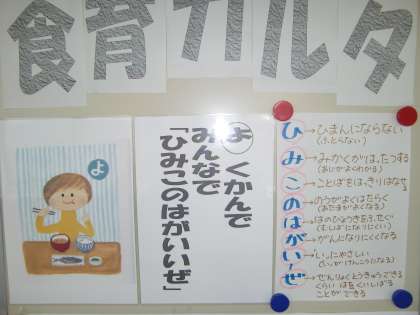 食育カルタ
よ
よくかんで
みんなで
「ひみこのはがいいぜ」
ひ→ひまんにならない
(ふとらない)
み→みかくがはったつする
(あじがよくわかる)
こ→ことばをはっきりはなせる
の→のうがよくはたらく
(あたまがよくなる)
は→はのびょうきをふせぐ
(むしばになりにくい)
が→がんになりにくくなる
い→いにやさしい
(いがげんきになる)
ぜ→ぜんりょくとうきゅうできる
くらいはをくいしばる
ことができる